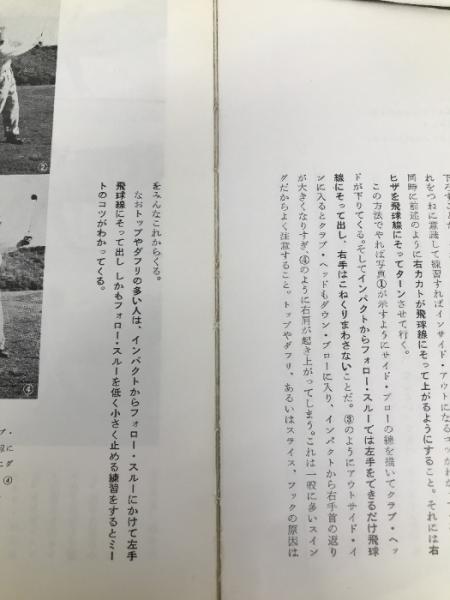 れをつねに意識して練習すればインサイド・アウトになるコツがわかり
同時に前述のように右カカトが飛球線にそって上がるようにすること。それには右
ヒザを飛球線にそってターンさせて行く。
この方法でやれば写真①が示すようにサイド・ブローの線を描いてクラブ・ヘッ
ドが下りてくる。そしてインパクトからフォロー・スルーでは左手をできるだけ飛球
線にそって出し、右手はこねくりまわさないことだ。③のようにアウトサイド・イ
ンに入るとクラブ・ヘッドもダウン・ブローに入り、インパクトから右手首の返り
が大きくなりすぎ、④のように右肩が起き上がってしまう。これは一般に多いスイン
グだからよく注意すること。トップやダフリ、あるいはスライス、フックの原因は
をみんなこれからくる。
なおトップやダフリの多い人は、インパクトからフォロー・スルーにかけて左手
飛球線にそって出し しかもフォロー・スルーを低く小さく止める練習をするとミー
トのコツがわかってくる。
②
④
プ・
に
ダ
④